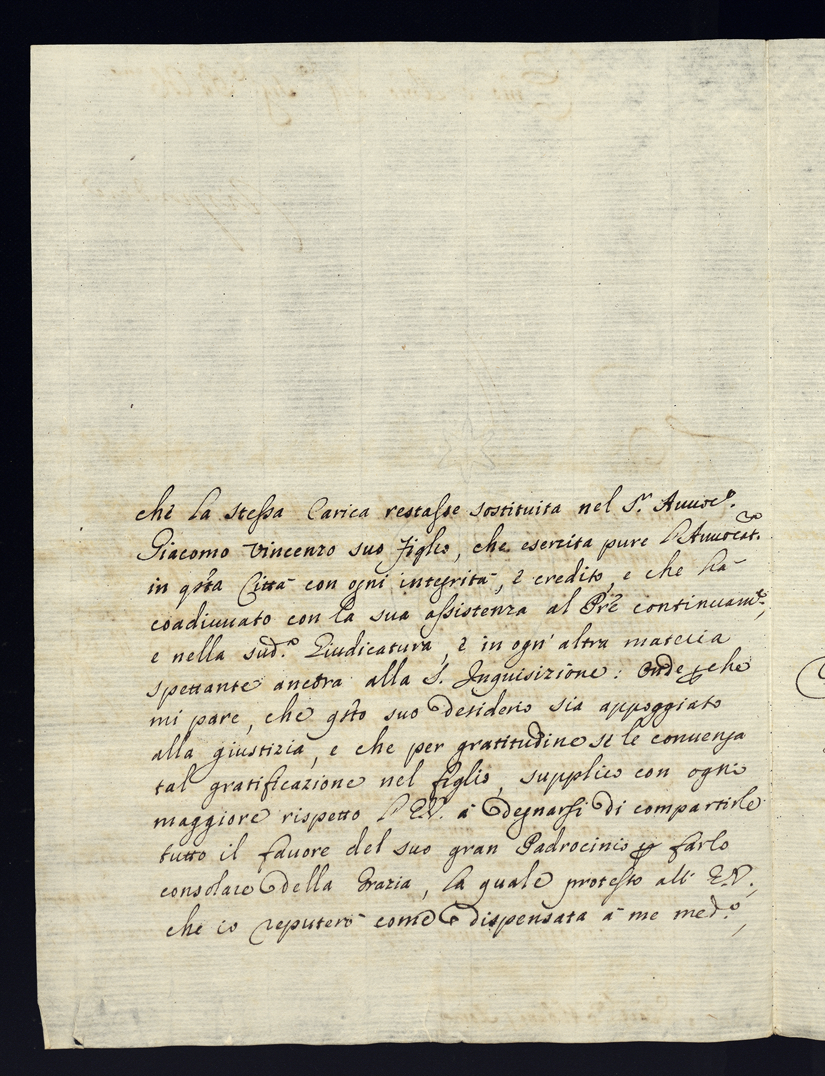 che la stessa Carica restasse sostituita nel S.r Auuoc.o
Giacomo Vincenzo suo figlio, che esercita pure l'Auuocat.a
in q̃sta Città con ogni integrità, è credito, e che hà
coadiuuato con la sua assistenza al Pr̃e continuam.te,
e nella sud.a Giudicatura, è in ogn' altra materia
spettante ancora alla S. Inquisizione: Onde perche
mi pare, che q̃sto suo desiderio sia appoggiato
alla giustizia, e che per gratitudine si le conuenga
tal gratificazione nel figlio, supplico con ogni
maggiore rispetto l' E.V. à degnarsi di compartirle
tutto il fauore del suo gran Padrocinio per farlo
consolare della Grazia, la quale protesto all' E.V.,
che io reputerò come dispensata à me med.o,